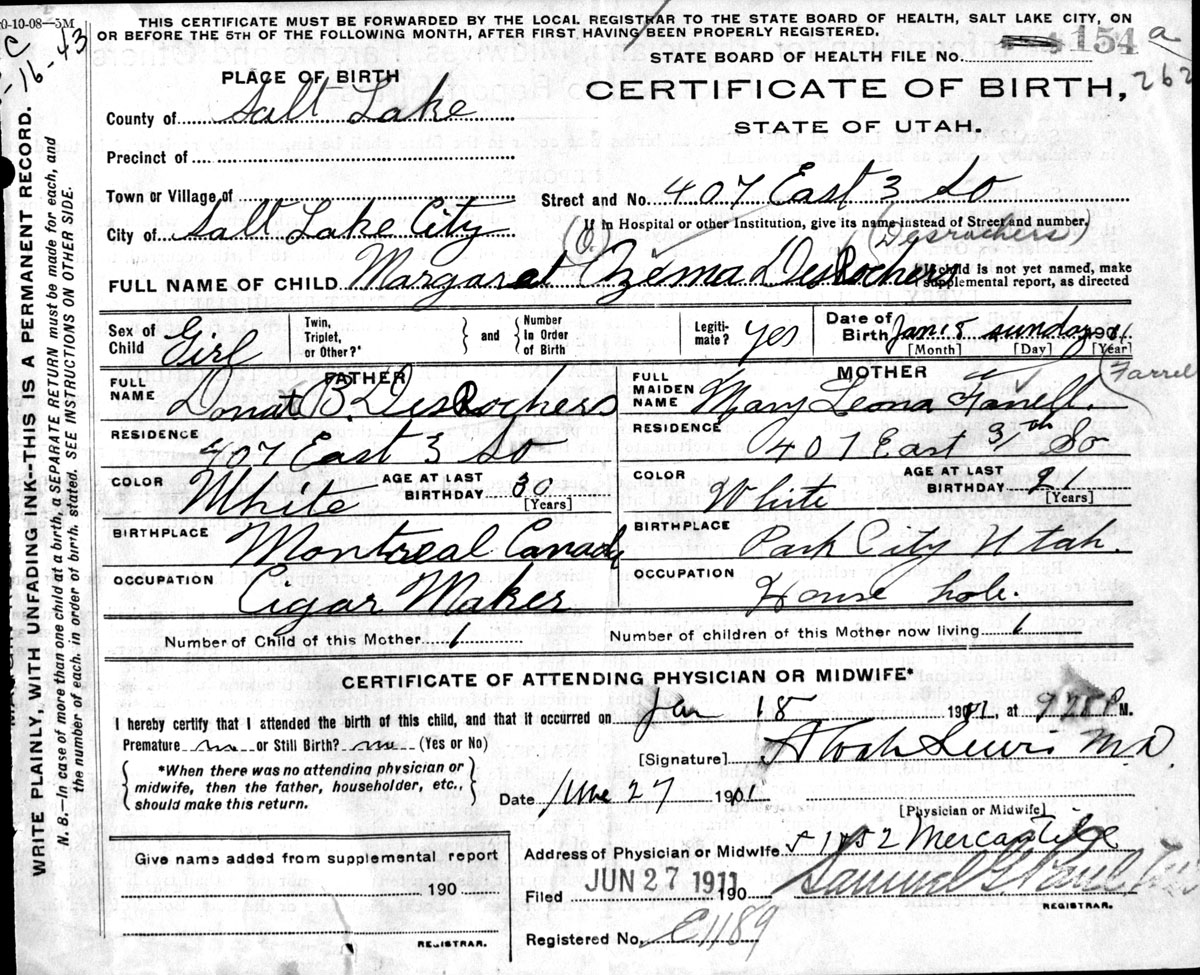 0-10-08—5M
THIS CERTIFICATE MUST BE FORWARDED BY THE LOCAL REGISTRAR TO THE STATE BOARD OF HEALTH, SALT LAKE CITY, ON
OR BEFORE THE 5TH OF THE FOLLOWING MONTH, AFTER FIRST HAVING BEEN PROPERLY REGISTERED.
C
-16-43
154 a
STATE BOARD OF HEALTH FILE No.
262
PLACE OF BIRTH
CERTIFICATE OF BIRTH,
STATE OF UTAH.
County of Salt Lake
Precinct of
Town or Village of
Street and No. 407 East 3 So
City of Salt Lake City
(If in Hospital or other Institution, give its name instead of Street and number)
(O)
(Desrochers)
FULL NAME OF CHILD Margaret Ozéma DesRochers
child is not yet named, make
supplemental report, as directed
Sex of Child Girl
Twin, Triplet, or Other?*
and
Number In Order of Birth
Legiti- mate? yes
Date of Birth Jan 8 sunday 1911
[Month] [Day] [Year]
FATHER
MOTHER
(Farrel
FULL NAME Donat B. DesRochers
FULL MAIDEN NAME Mary Leona Farrell.
RESIDENCE 407 East 3 So
RESIDENCE 407 East 3th So
COLOR White AGE AT LAST BIRTHDAY 30 [Years]
COLOR White AGE AT LAST BIRTHDAY 21 [Years]
BIRTHPLACE Montreal Canada
BIRTHPLACE Park City Utah.
OCCUPATION Cigar Maker
OCCUPATION House
Number of Child of this Mother 1
Number of children of this Mother now living 1
CERTIFICATE OF ATTENDING PHYSICIAN OR MIDWIFE*
I hereby certify that I attended the birth of this child, and that it occurred on Jan 18 1911, at 925 P M.
Premature no or Still Birth? no (Yes or No)
[Signature] Lewis MD.
*When there was no attending physician or
midwife, then the father, householder, etc.,
should make this return.
Date June 27 1911
[Physician or Midwife]
Give name added from supplemental report
190
REGISTRAR.
Address of Physician or Midwife Mercantile
Filed JUN 27 1911 190
Samuel G Paul
REGISTRAR.
Registered No. E1189
WRITE PLAINLY, WITH UNFADING INK--THIS IS A PERMANENT RECORD.
N. B.—In case of more than one child at a birth, a SEPARATE RETURN must be made for each, and
the number of each, in order of birth, stated. SEE INSTRUCTIONS ON OTHER SIDE.